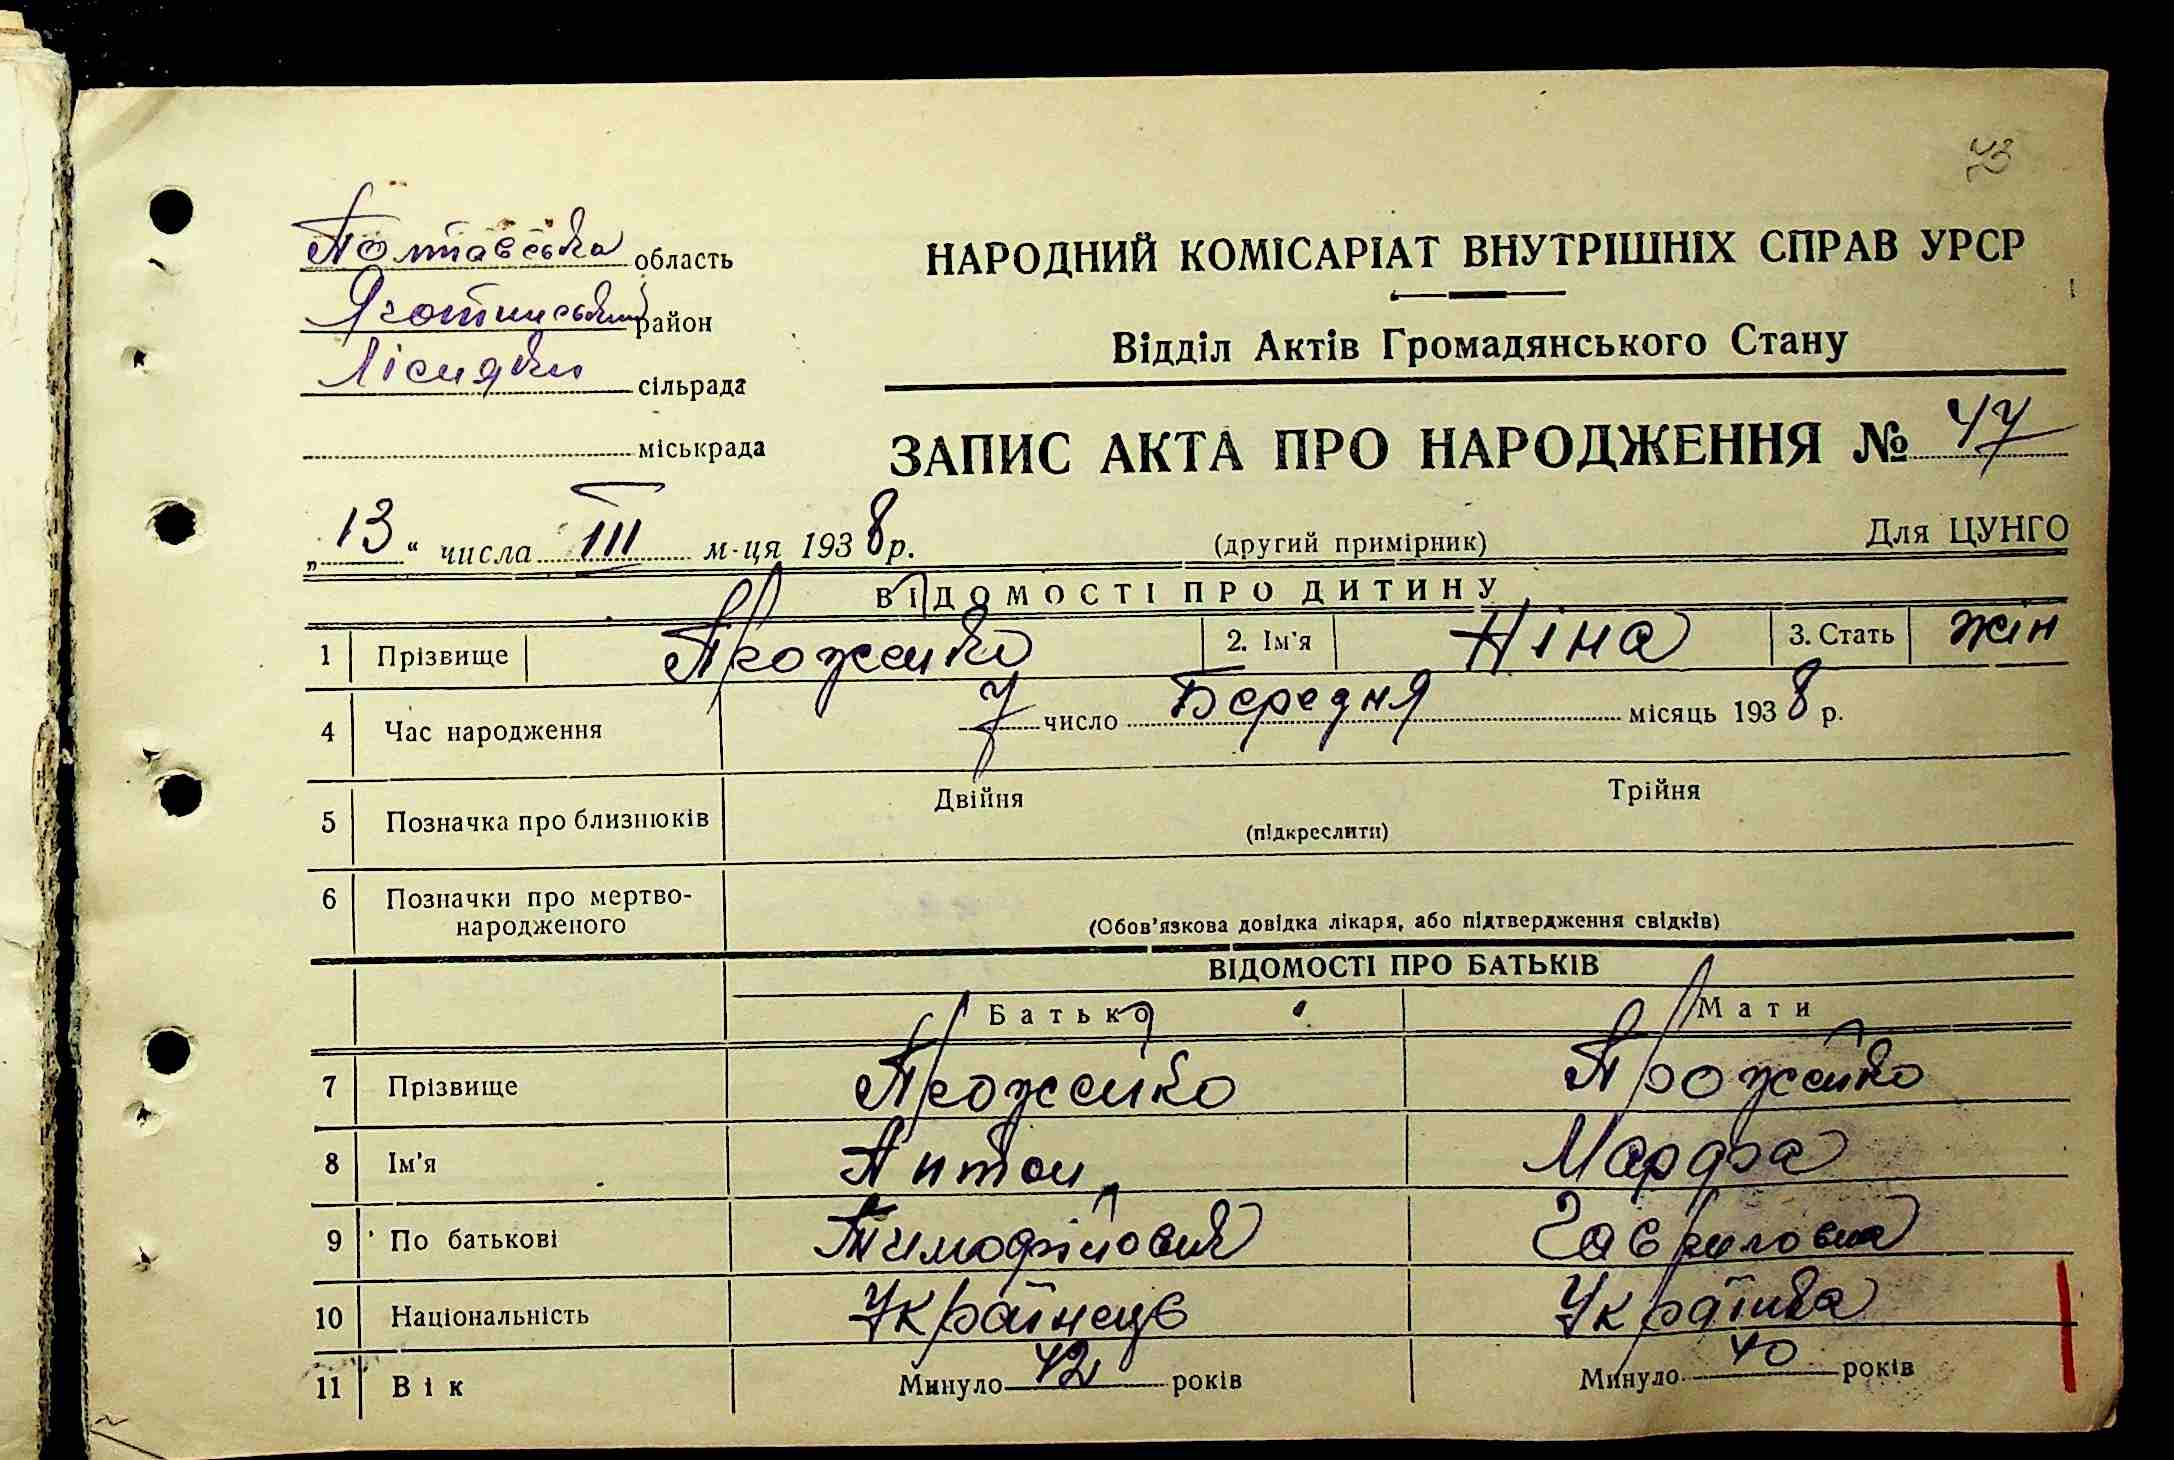 73
Полтавська область
Яготинський район
сільрада
міськрада
НАРОДНИЙ КОМІСАРІАТ ВНУТРІШНІХ СПРАВ УРСР
Відділ Актів Громадянського Стану
ЗАПИС АКТА ПРО НАРОДЖЕННЯ № 47
„13“ числа III м-ця 1938 р.
(другий примірник)
Для ЦУНГО
ВІДОМОСТІ ПРО ДИТИНУ
1 Прізвище Проженко 2. Ім'я Ніна 3. Стать жін
4 Час народження 7 число Березня місяць 1938 р.
5 Позначка про близнюків Двійня Трійня
(підкреслити)
6 Позначки про мертво-
народженого
(Обов'язкова довідка лікаря, або підтвердження свідків)
ВІДОМОСТІ ПРО БАТЬКІВ
Батько Мати
7 Прізвище Проженко Проженко
8 Ім'я Антон Марфа
9 По батькові Тимофійович Гавриловна
10 Національність Українець Українка
11 Вік Минуло 42 років Минуло 40 років